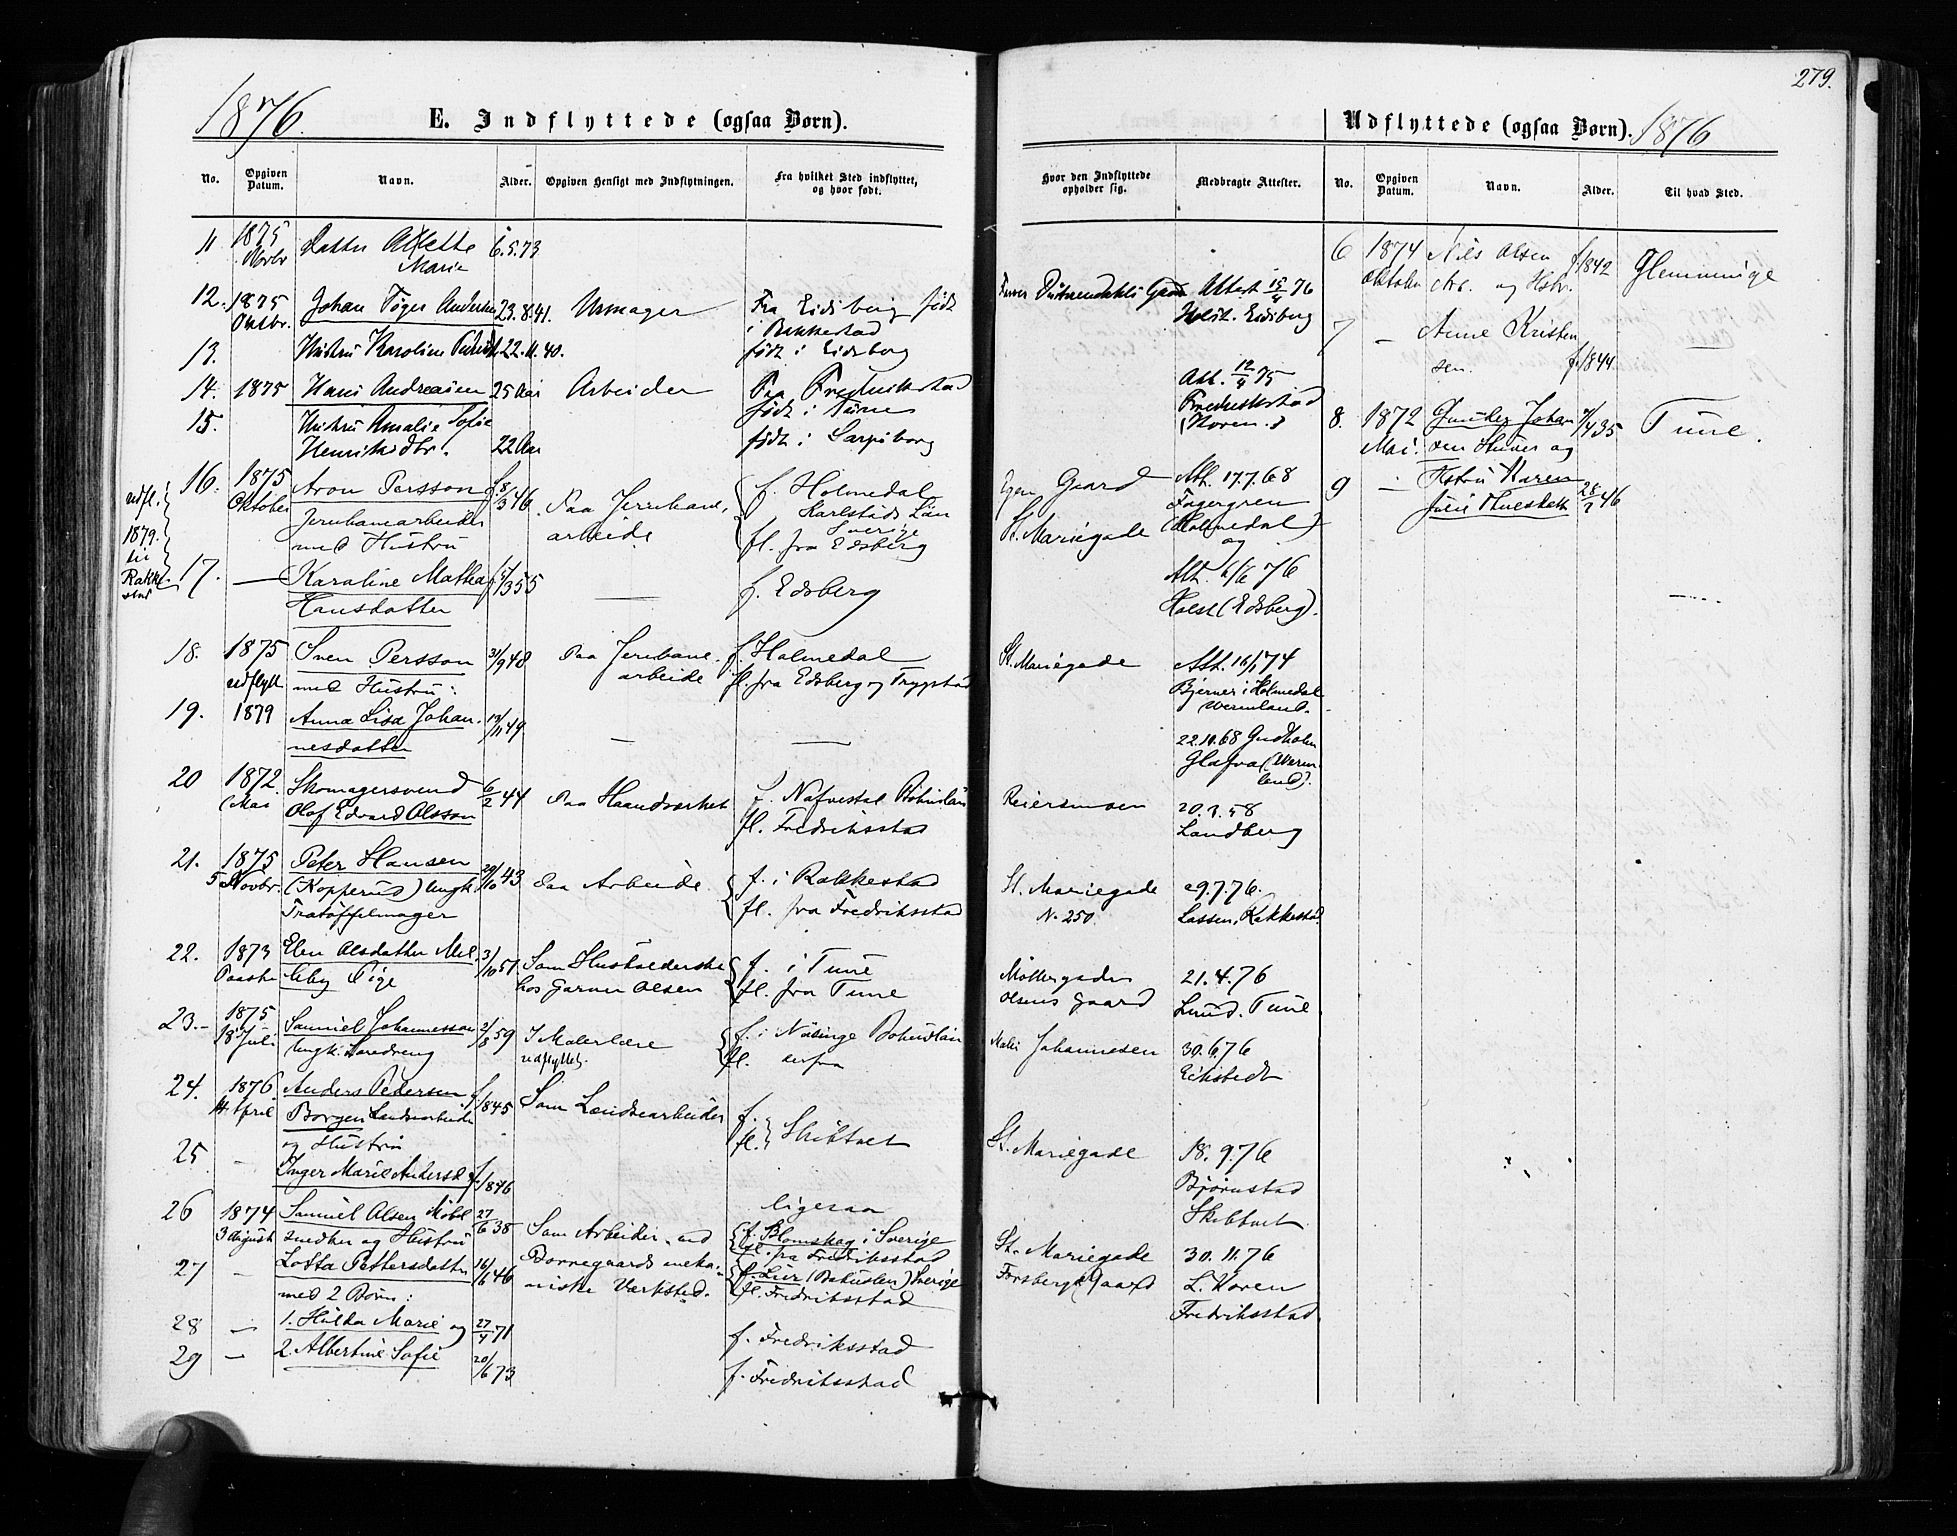 279.
1876.
E. Indflyttede (ogsaa Børn).
No.
Opgiven Datum.
Navn.
Alder.
Opgiven Hensigt med Indflytningen.
Fra hvilket Sted indflyttet, og hvor født.
Hvor den Indflyttede opholder sig.
Medbragte Attester.
11 1875 Novbr Datter Marie 6.5.73
12. 1875 Oktbr. Johan Andersen 23.8.41. Urmager Fra Eidsberg født
i Rakkestad
Attest 15/4 76
Holst. Eidsberg
13. Hustru Karoline 22.11.40. født i Eidsberg
14. 1875 Hans Andreasen 25 Aar Arbeider Fra Fredrikstad
født i Tune
Att. 12/4 75
Fredrikstad
(Koren.)
15. Hustru Amalie Sofie
Henriksdtr. 22 Aar født i Sarpsborg
udfl.
1879
til
Rakke-
stad
16. 1875 Oktober Aron Persson f. 8/3 46 Paa Jernbane-
arbeide
Jernbanearbeider
med Hustru
f. Holmedal
Karlstads Län
Sverige
fl. fra Edsberg
Egen Gaard
St. Mariegade
Att. 17.7.68
Fagergren
(Holmedal)
og
17. — Karoline Mathea
Hansdatter 55 — f. Edsberg
Att. 6/6 76
Holst (Edsberg).
18. 1875 Sven Persson 31/9 48 Paa Jernbane-
arbeide
udflytt
med Hustru:
f. Holmedal
fl. fra Edsberg og Trygstad
St. Mariegade
Att. 16/1 74
Bjerner i Holmedal
Wermland.
19. 1879 Anna Lisa Johan-
nesdatter 49 — —
22.10.68 Gudholm
Glafva (Werm-
land).
20 1872. Mai Skomagersvend
Olof Edvard Olsson 6/2 44 Paa Haandværket f. Nafvestad Bohuslän
fl. Fredriksstad
20. 58
Landberg
21. 1875 5 Novbr. Peter Hansen
(Kopperud) Ungk.
Tratøffelmager 29/10 43 Paa Arbeide f. i Rakkestad
fl. fra Fredriksstad
St. Mariegade
N. 250
29.7.76.
Lassen, Rakkestad
22. 1873 Paaske Elen Olsdatter Mel-
leby Pige 3/10 51 Som Husholderske
hos Garver Olsen
f. i Tune
fl. fra Tune
Møllergaden
Olsens Gaard
21.4.76
Lund. Tune
23. 1875 18 Juli Samuel Johannesson
Ungk. Læredreng 2/8 59 I Malerlære
udflyttet.
f. i Näsinge Bohuslän
fl. derfra
Maler Johannesen
30.6.76
24. 1876. 14 April Anders Pedersen
Borgen Landsarbeider
og Hustru f. 1845 Som Landsarbeider f.
fl. Skibtvet
St. Mariegade
18.9.76
Bjørnstad
Skibtvet
25 — Inger Marie Andersd. f. 1846
ligesaa
26 1874 3 August Samuel Olsen Møbel-
snedker og Hustru 27/6 38 Som Arbeider ved
f. Blomskog i Sverige
fl. fra Fredriksstad
St. Mariegade
Forsbergs Gaard
30.11.76
L. Koren
Fredriksstad
27 — Lotta Pettersdatter 16/6 46 Borregaards meka-
niske Værksted.
med 2 Børn:
f. Lur (Bohuslen) Sverige
fl. Fredriksstad
28 — 1. Hulda Marie og 27/4 71 f. Fredriksstad
29 — 2. Albertine Sofie 20/6 73 f. Fredriksstad
Udflyttede (ogsaa Børn). 1876
No.
Opgiven Datum.
Navn.
Alder.
Til hvad Sted.
6 1874 Oktober Nils Olsen
Arb. og Hstr. f. 1842 Glemminge
7 — Anne Kristen
sen. f. 1844
8. 1872 Mai. Gunder Johan
35 Tune.
9 — Hstru Karen
46